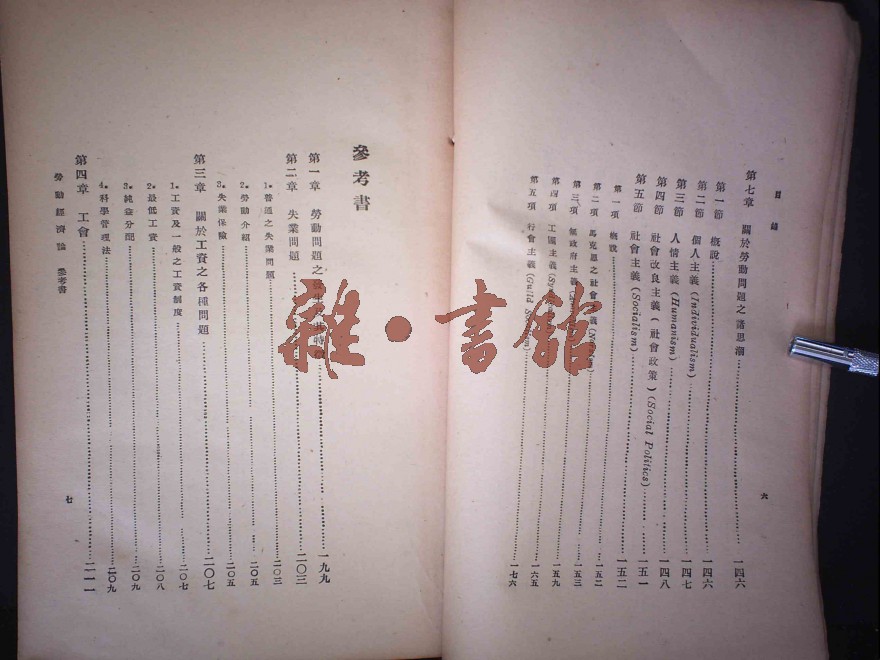 目錄
第七章 關於勞動問題之諸思潮 一四六
第一節 概說 一四六
第二節 個人主義(Individualism) 一四七
第三節 人情主義(Humanism) 一四七
第四節 社會改良主義(社會政策)(Social Politics) 一四八
第五節 社會主義(Socialism) 一五一
第一項 概說 一五二
第二項 馬克思之社會主義 一五二
第三項 無政府主義 一五三
第四項 工團主義 一五九
第五項 行會主義(Guild 一六五
一七六
六
參考書
第一章 勞動問題之 一九九
第二章 失業問題 二〇三
1. 普通之失業問題 二〇三
2. 勞動介紹 二〇五
3. 失業保險 二〇五
第三章 關於工資之各種問題 二〇七
1. 工資及一般之工資制度 二〇七
2. 最低工資 二〇八
3. 純益分配 二〇九
4. 科學管理法 二〇九
第四章 工會 二一一
勞動經濟論 參考書
七
雜·書館